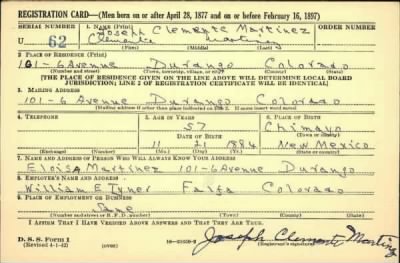 REGISTRATION CARD—(Men born on or after April 28, 1877 and on or before February 16, 1897)
SERIAL NUMBER 1. NAME (Print) ORDER NUMBER
Joseph Clemente Martinez
U 62 Clemente Martinez
(First) (Middle) (Last)
2. PLACE OF RESIDENCE (Print)
101-6 Avenue Durango Colorado
(Number and street) (Town, township, village, or city) (County) (State)
[THE PLACE OF RESIDENCE GIVEN ON THE LINE ABOVE WILL DETERMINE LOCAL BOARD
JURISDICTION; LINE 2 OF REGISTRATION CERTIFICATE WILL BE IDENTICAL]
3. MAILING ADDRESS
101-6 Avenue Durango Colorado
[Mailing address if other than place indicated on line 2. If same insert word same]
4. TELEPHONE 5. AGE IN YEARS 6. PLACE OF BIRTH
57 Chimayo
DATE OF BIRTH (Town or county)
11 21 1884 New Mexico
(Exchange) (Number) (Mo.) (Day) (Yr.) (State or country)
7. NAME AND ADDRESS OF PERSON WHO WILL ALWAYS KNOW YOUR ADDRESS
Eloisa Martinez 101-6 Avenue Durango
8. EMPLOYER'S NAME AND ADDRESS
William E Tyner Falfa Colorado
9. PLACE OF EMPLOYMENT OR BUSINESS
Same
(Number and street or R. F. D. number) (Town) (County) (State)
I AFFIRM THAT I HAVE VERIFIED ABOVE ANSWERS AND THAT THEY ARE TRUE.
D. S. S. Form 1
(Revised 4-1-42) (over) Joseph Clemente Martinez
(Registrant's signature)